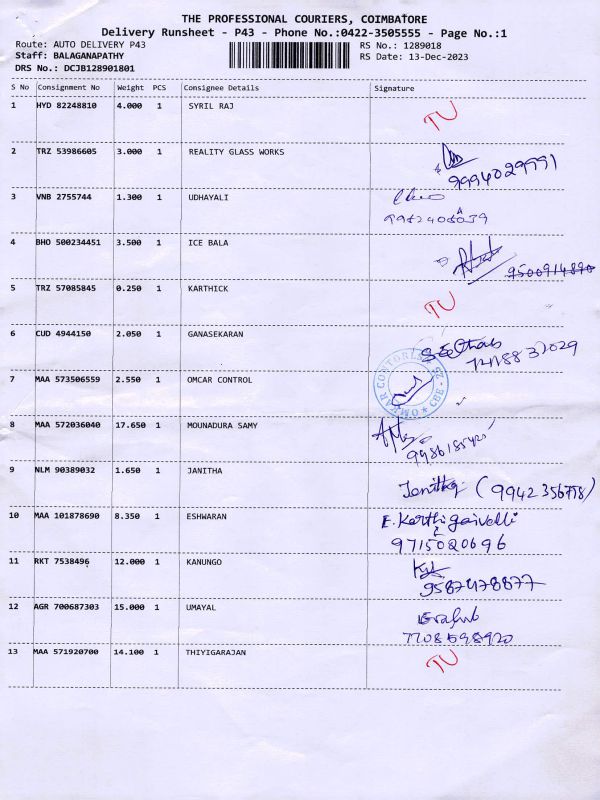 THE PROFESSIONAL COURIERS, COIMBATORE
Delivery Runsheet - P43 - Phone No.:0422-3505555 - Page No.:1
Route: AUTO DELIVERY P43 RS No.: 1289018
Staff: BALAGANAPATHY RS Date: 13-Dec-2023
DRS No.: DCJB128901801
S No Consignment No Weight PCS Consignee Details Signature
1 HYD 82248810 4.000 1 SYRIL RAJ TU
2 TRZ 53986605 3.000 1 REALITY GLASS WORKS
9994029991
3 VNB 2755744 1.300 1 UDHAYALI
4 BHO 500234451 3.500 1 ICE BALA
9500914890
5 TRZ 57085845 0.250 1 KARTHICK TU
6 CUD 4944150 2.050 1 GANASEKARAN
7 MAA 573506559 2.550 1 OMCAR CONTROL
8 MAA 572036040 17.650 1 MOUNADURA SAMY
9 NLM 90389032 1.650 1 JANITHA
10 MAA 101878690 8.350 1 ESHWARAN E. Karthigaivalli
9715020696
11 RKT 7538496 12.000 1 KANUNGO
12 AGR 700687303 15.000 1 UMAYAL
7708698920
13 MAA 571920700 14.100 1 THIYIGARAJAN TU